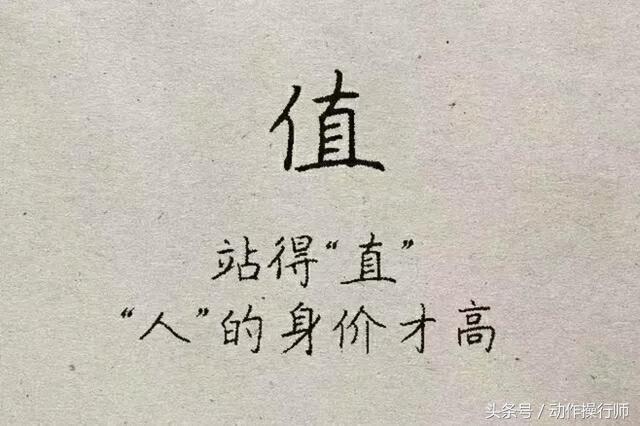 值
站得“直”
“人”的身价才高
头条号／动作操行师